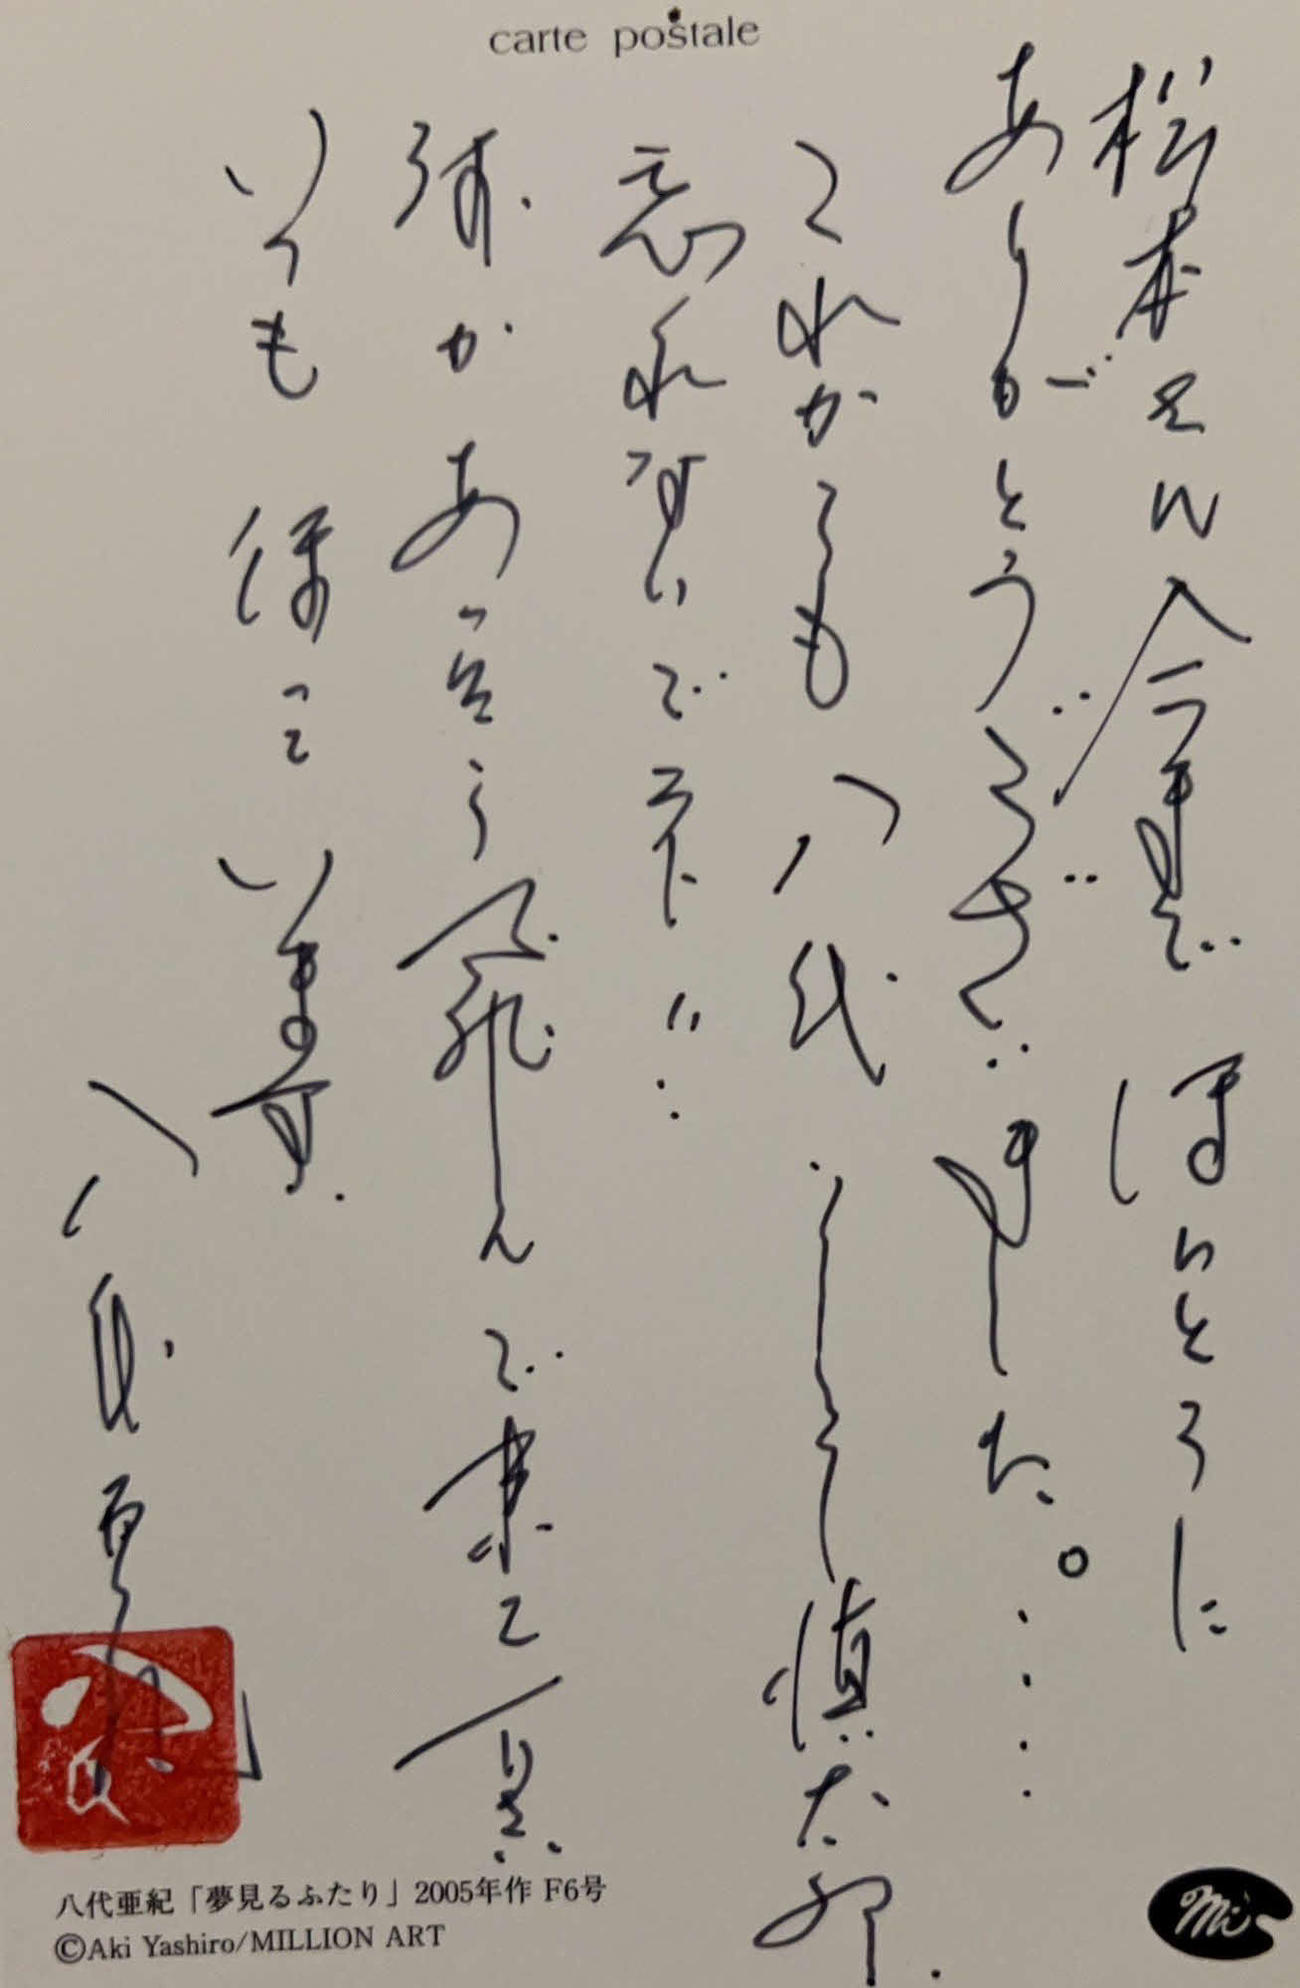 carte postale
松本さんへ 今まで ほんとうに
ありがとうございました。....
これからも 八代 慎太郎.
忘れないで下さい
があったら 飛んで来て下さい.
いつも 待っています.
八代亜紀
八代亜紀「夢見るふたり」2005年作 F6号
©Aki Yashiro/MILLION ART
Mi